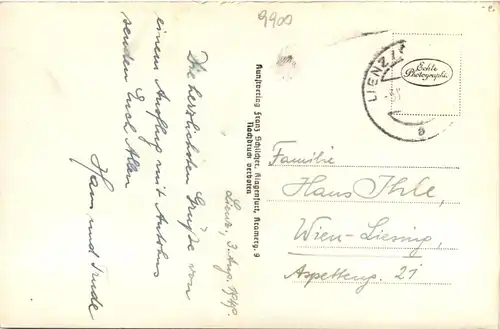 9900
Lienz, 3. Aug. 1949.
Die herzlichsten Grüße von
einem Ausflug mit Autobus
senden Euch Allen
Hans und Trude
Kunstverlag Franz Schilcher, Klagenfurt, Kramerg. 9
Nachdruck verboten
LIENZ
a
Echte
Photographie
Familie
Hans Ihle,
Wien-Liesing,
Aspetteng. 21